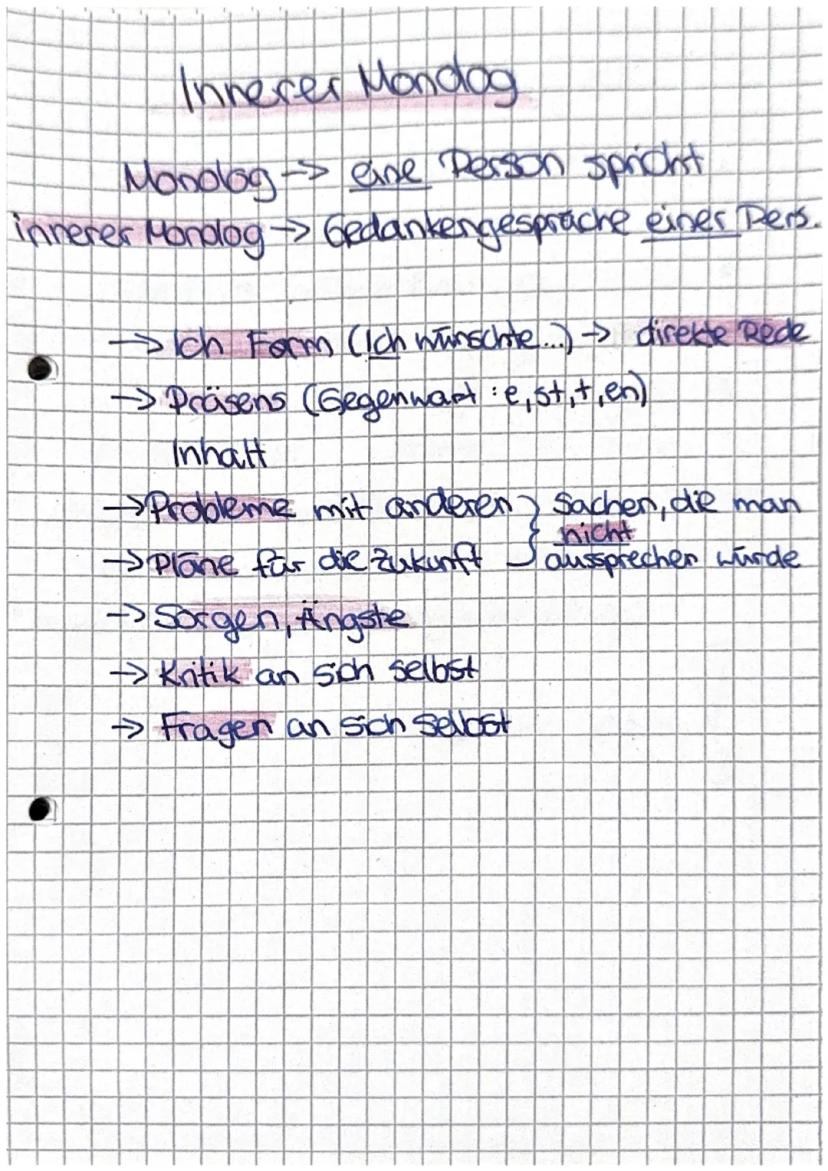 Innerer Monolog
Monolog → eine Person spricht
innerer Monolog → Gedankengespräche einer Pers.
→ Ich Form (Ich wünschte...) → direkte Rede
→ Präsens (Gegenwart : e, st, t, en)
Inhalt
→ Probleme mit anderen } Sachen, die man
nicht
→ Pläne für die Zukunft aussprechen würde
→ Sorgen, Ängste
→ Kritik an sich selbst
→ Fragen an sich selbst